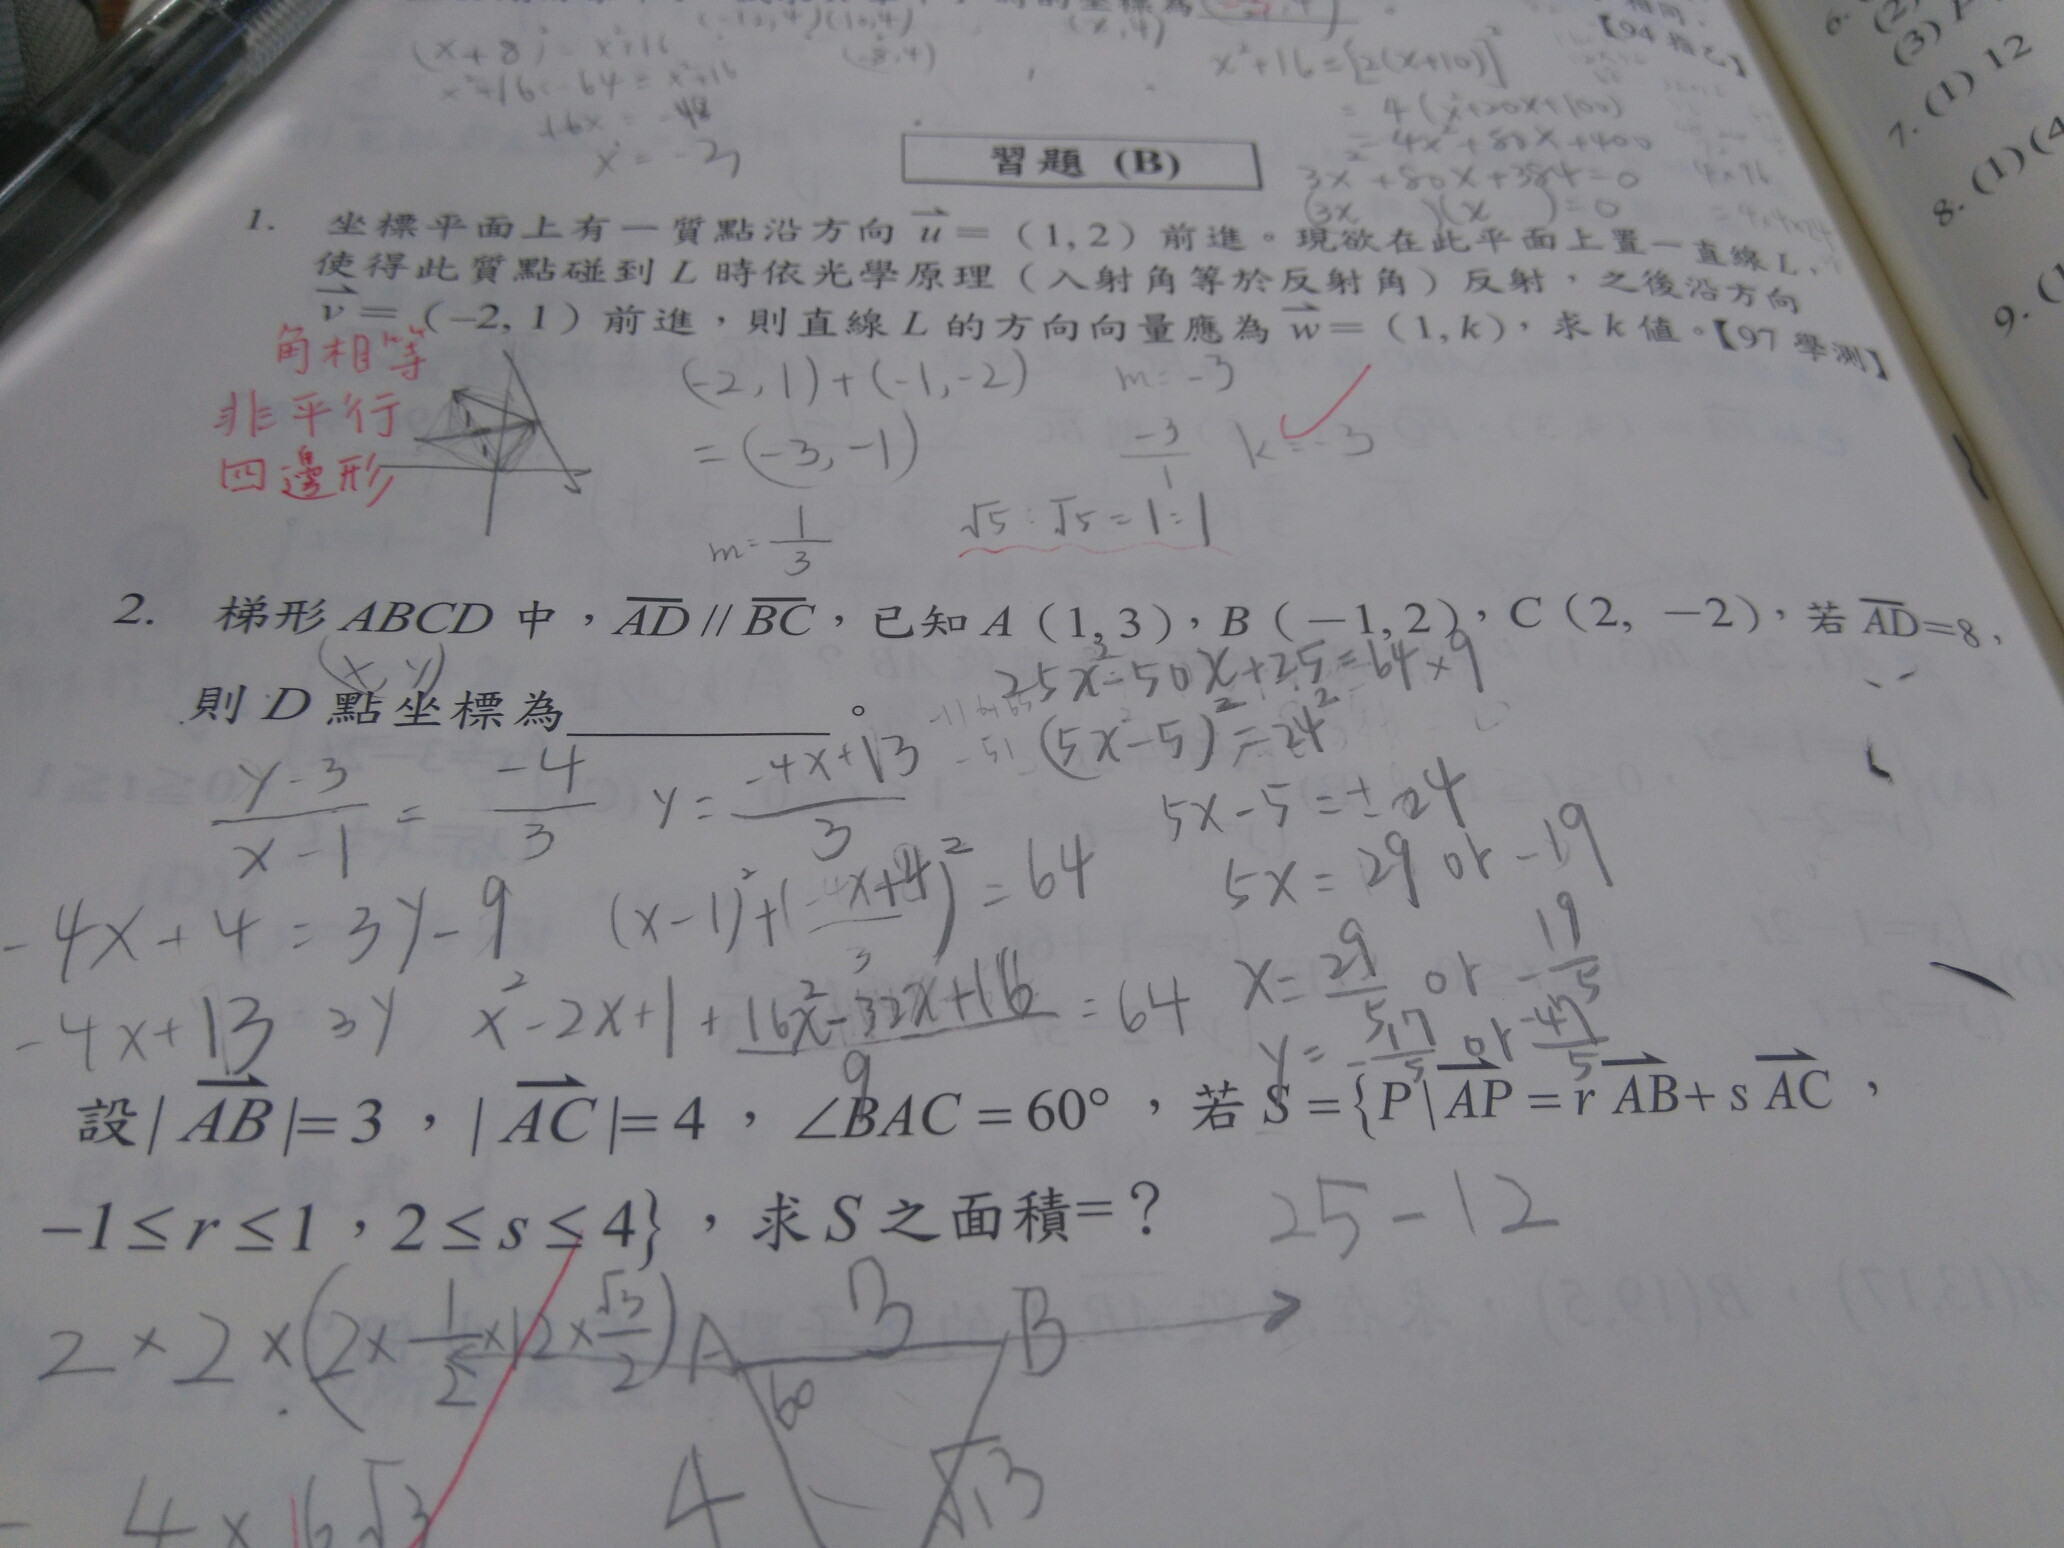 (-12,4)(10,4)
(x,4)
【94指乙】
6.
(2)
(3)
(x+8)² = x²+16
x²+16 = [2(x+10)]²
7. (1) 12
= 4(x²+20x+100)
16x = -48
= 4x²+80x+400
x = -3
習題 (B)
3x²+80x+384=0
8. (1)(4
(3x )(x )=0
1. 坐標平面上有一質點沿方向 u = (1,2) 前進。現欲在此平面上置一直線 L,
使得此質點碰到 L 時依光學原理（入射角等於反射角）反射，之後沿方向
9. (1
v = (-2,1) 前進，則直線 L 的方向向量應為 w = (1,k)，求 k 值。【97 學測】
角相等
非平行
四邊形
(-2,1)+(-1,-2) m=-3
=(-3,-1) -3/1 k=-3
m=1/3 √5:√5=1:1
2. 梯形 ABCD 中，AD // BC，已知 A (1,3)，B (-1,2)，C (2, -2)，若 AD=8，
(x, y) 25x²-50x+25=64×9
則 D 點坐標為＿＿＿＿＿。
(5x-5)²=24²
(y-3)/(x-1) = -4/3 y = (-4x+13)/3 5x-5=±24
-4x+4=3y-9 (x-1)²+((-4x+4)/3)²=64 5x=29 or -19
-4x+13=3y x²-2x+1+(16x²-32x+16)/9=64 x=29/5 or -19/5
y=-17/5 or -47/5
設| AB |=3，| AC |=4，∠BAC=60°，若 S={P|AP=r AB+s AC，
-1≤r≤1，2≤s≤4}，求 S 之面積=? 25-12
2×2×(2×1/2×12×√3/2) A 3 B
60
4×16√3 4 √13